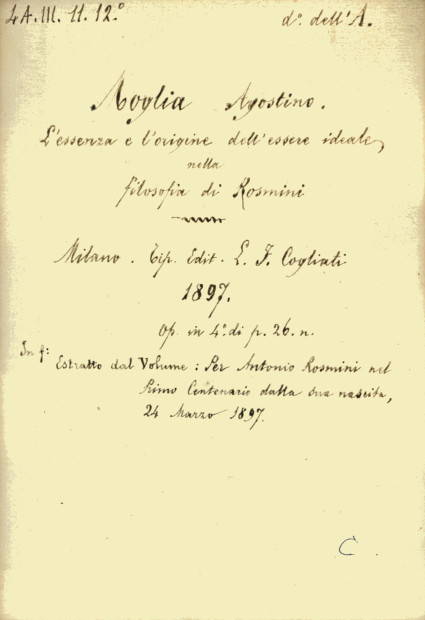 4A.III.11.12.° d.° dell'A.
Moglia Agostino.
L'essenza e l'origine dell'essere ideale,
nella
filosofia di Rosmini
Milano. Tip. Edit. L. F. Cogliati
1897.
Op. in 4.° di p. 26. n.
In f:
Estratto dal Volume: Per Antonio Rosmini nel
Primo Centenario dalla sua nascita,
24 Marzo 1897.
C.